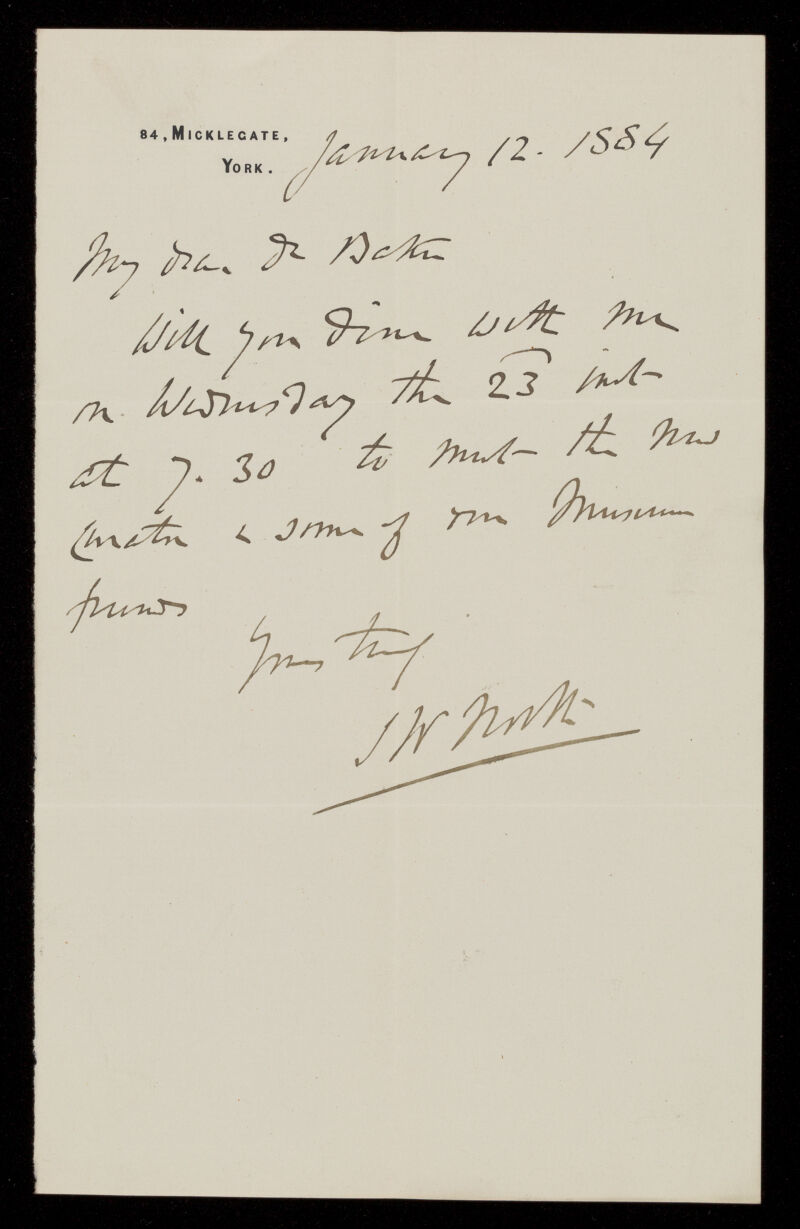 84, MICKLEGATE,
YORK.
January 12. 1884
My dear Dr Baker
Will you dine with me
on Wednesday the 23 inst
at 7.30 to meet the new
Curator & some of our Museum
friends
Yours truly
S W North